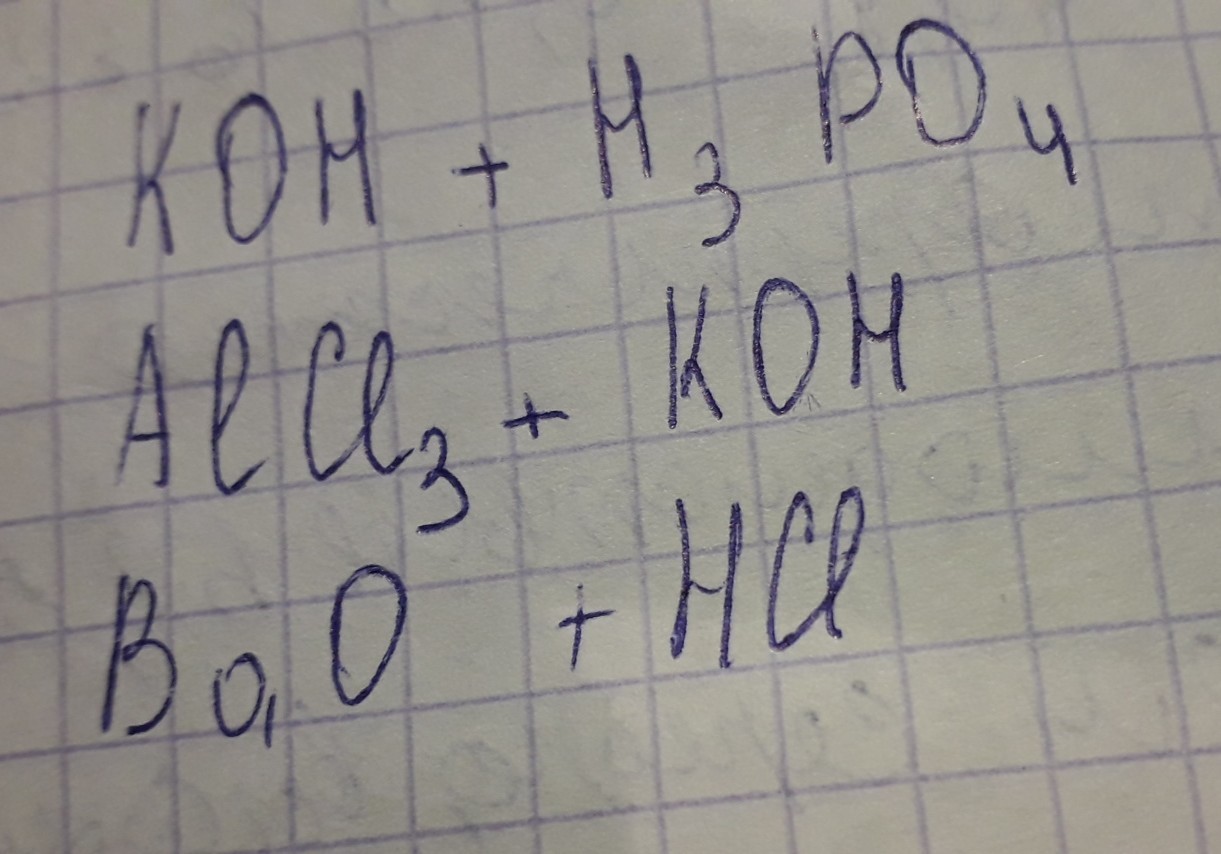 KOH + H₃ PO₄
AlCl₃ + KOH
BaO + HCl